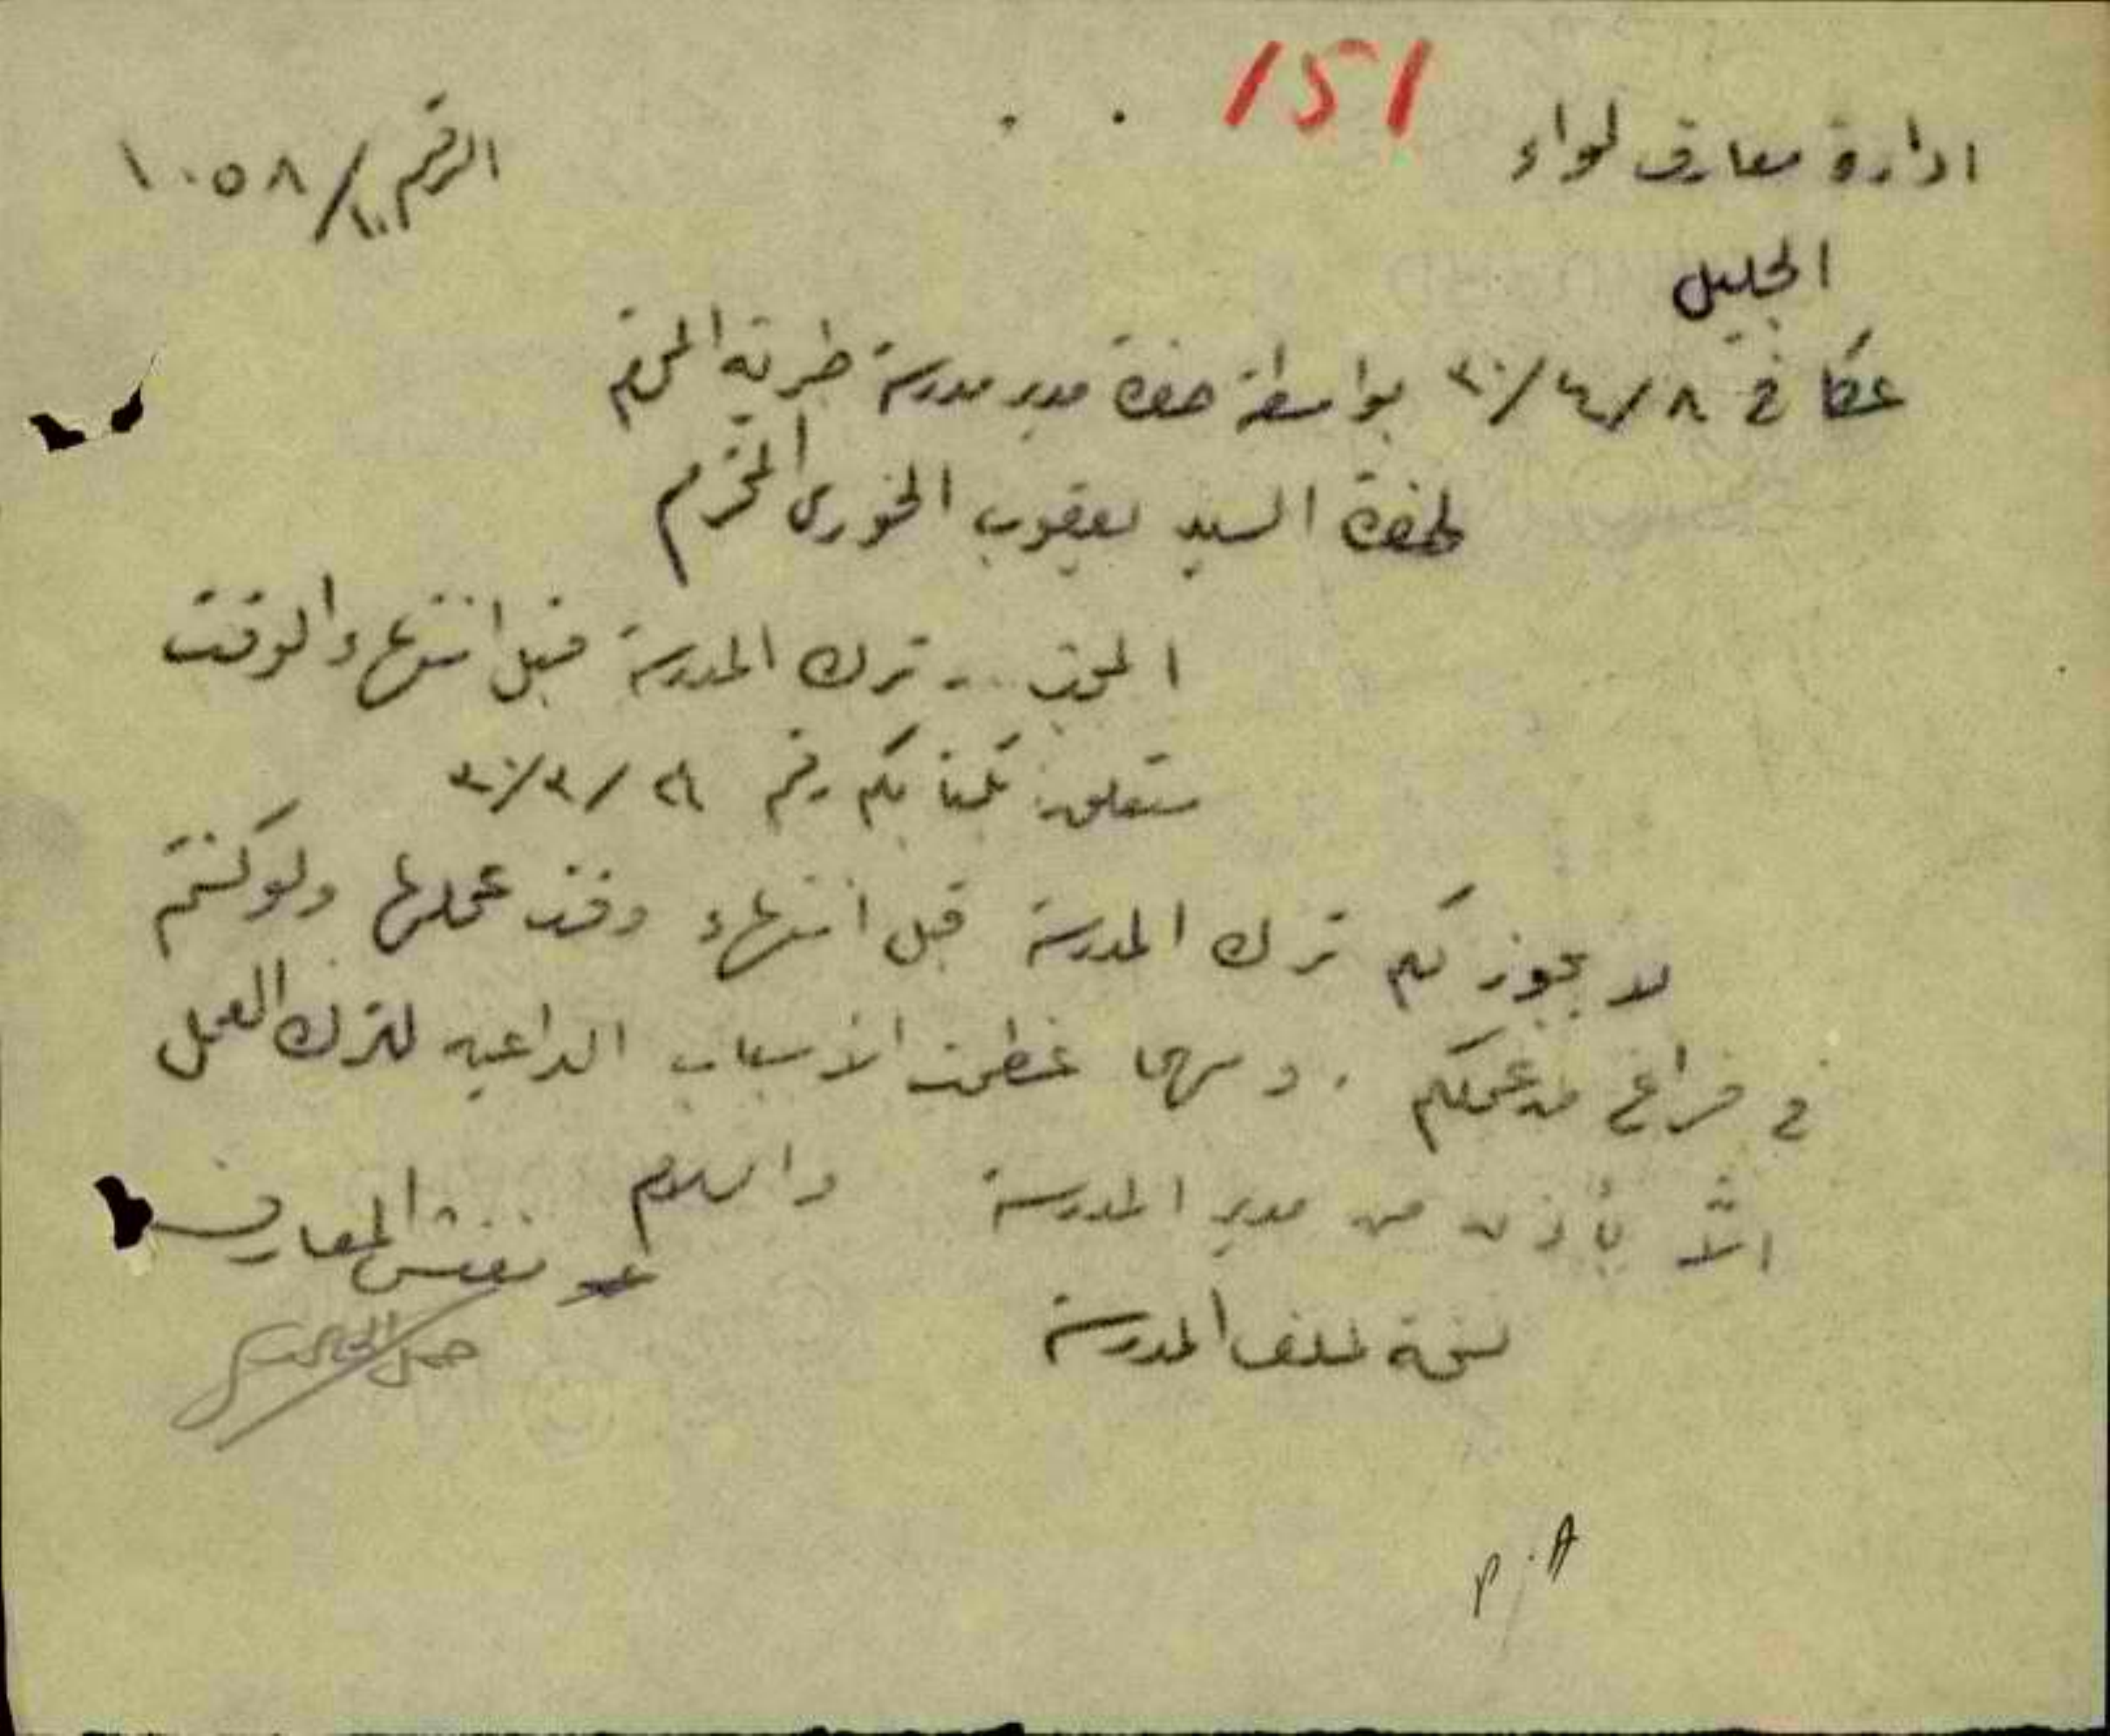 151
ادارة معارف لواء
الرقم ١٠/١٠٥٨
الجليل
عكا في ٨/٤/٣٠ بواسطة حضرة مدير مدرسة طبرية المحترم
لحضرة السيد يعقوب الخوري المحترم
المبحث - ترك المدرسة قبل انتهاء الوقت
متعلق بكتابكم رقم ٣٠/٣/
لا يجوز لكم ترك المدرسة قبل انتهاء وقت عملها ولو كنتم
في فراغ من عملكم . ومهما عظمت الأسباب الداعية لترك العمل
الاّ بأذن من مدير المدرسة والسلام
مفتش المعارف
نسخة لملف المدرسة